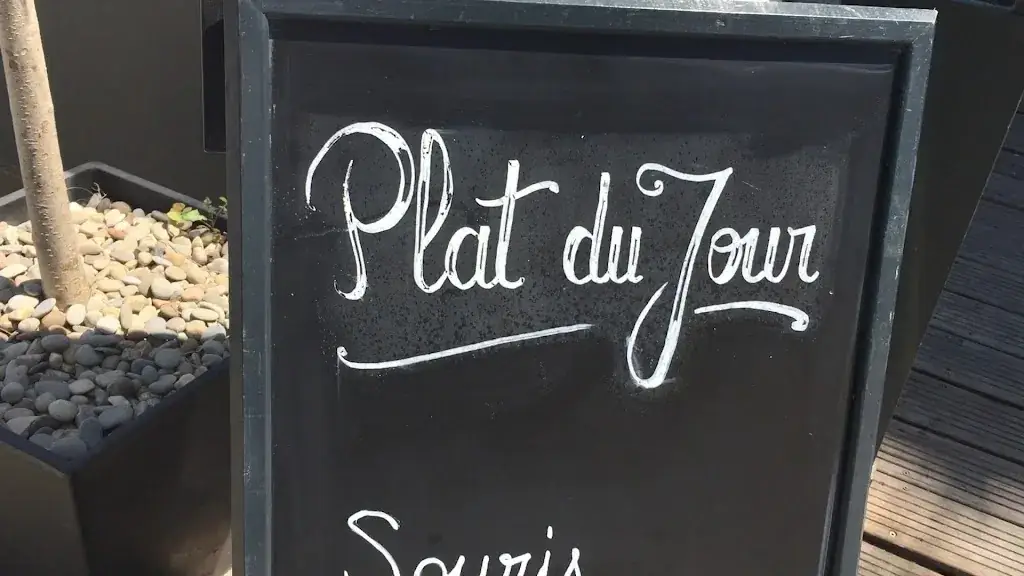 Plat du Jour
Souris